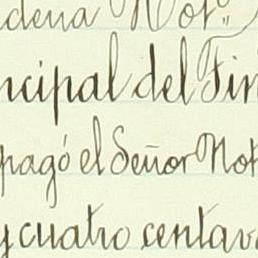 dena Not.
ncipal del Tim
pagó el Señor Not
y cuatro centav